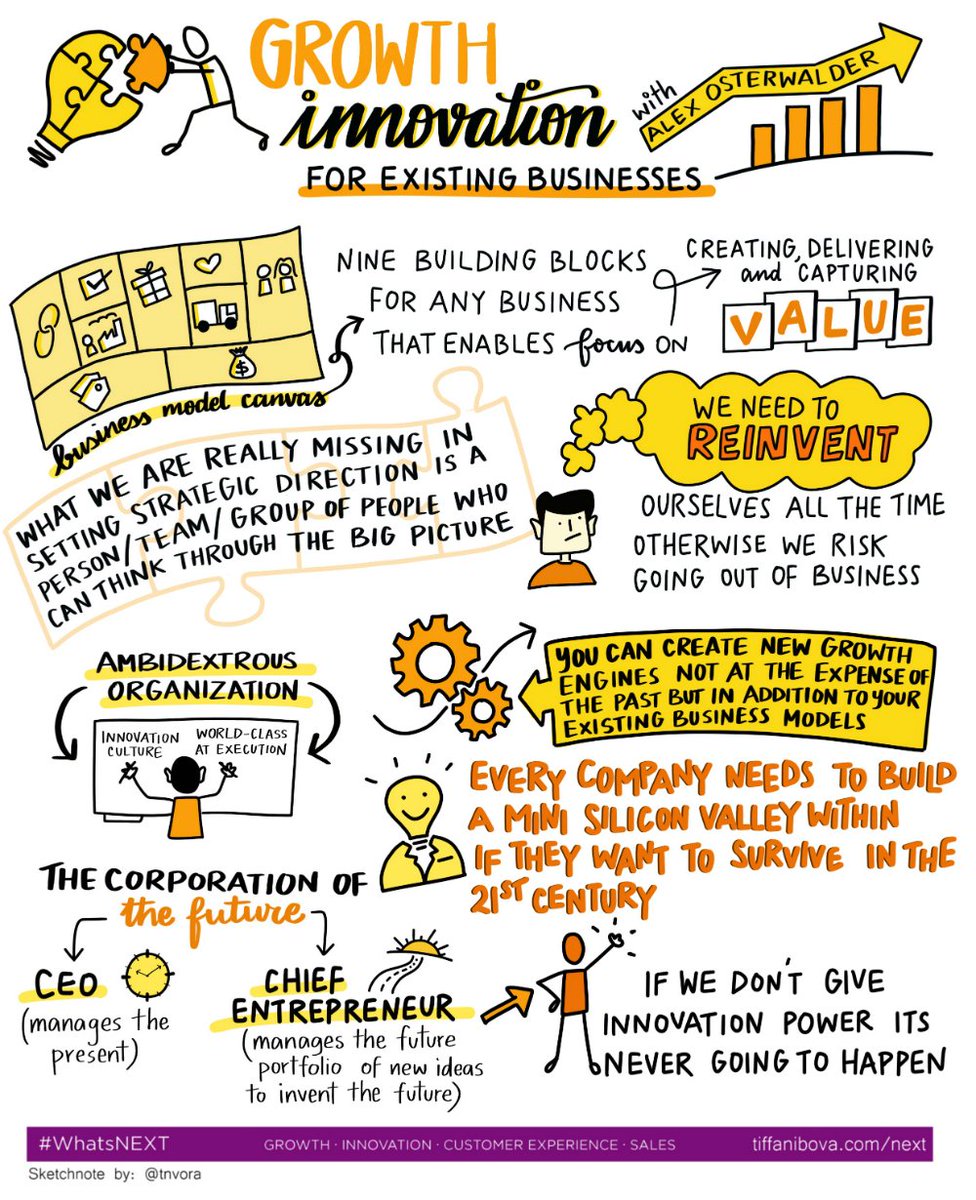 GROWTH
innovation
FOR EXISTING BUSINESSES
with
ALEX OSTERWALDER
business model canvas
NINE BUILDING BLOCKS
FOR ANY BUSINESS
THAT ENABLES focus ON
CREATING, DELIVERING
and CAPTURING
VALUE
$
WHAT WE ARE REALLY MISSING IN
SETTING STRATEGIC DIRECTION IS A
PERSON/TEAM/GROUP OF PEOPLE WHO
CAN THINK THROUGH THE BIG PICTURE
WE NEED TO
REINVENT
OURSELVES ALL THE TIME
OTHERWISE WE RISK
GOING OUT OF BUSINESS
AMBIDEXTROUS
ORGANIZATION
INNOVATION
CULTURE
WORLD-CLASS
AT EXECUTION
YOU CAN CREATE NEW GROWTH
ENGINES NOT AT THE EXPENSE OF
THE PAST BUT IN ADDITION TO YOUR
EXISTING BUSINESS MODELS
EVERY COMPANY NEEDS TO BUILD
A MINI SILICON VALLEY WITHIN
IF THEY WANT TO SURVIVE IN THE
21ST CENTURY
THE CORPORATION OF
the future
CEO
(manages the
present)
CHIEF
ENTREPRENEUR
(manages the future
portfolio of new ideas
to invent the future)
IF WE DON'T GIVE
INNOVATION POWER ITS
NEVER GOING TO HAPPEN
#WhatsNEXT
GROWTH · INNOVATION · CUSTOMER EXPERIENCE · SALES
tiffanibova.com/next
Sketchnote by: @tnvora